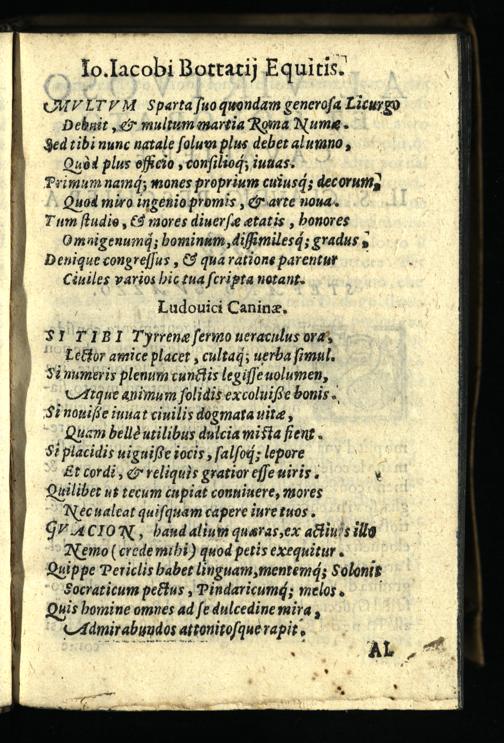 Io. Iacobi Bottatij Equitis.
MVLTVM Sparta suo quondam generosa Licurgo
Debuit, & multum martia Roma Numæ.
Sed tibi nunc natale solum plus debet alumno,
Quòd plus officio, consilioq; iuuas.
Primum namq; mones proprium cuiusq; decorum,
Quod miro ingenio promis, & arte noua.
Tum studia, & mores diuersæ ætatis, honores
Omnigenumq; hominum, dissimilesq; gradus,
Denique congressus, & qua ratione parentur
Ciuiles varios hic tua scripta notant.
Ludouici Caninæ.
SI TIBI Tyrrenæ sermo ueraculus oræ,
Lector amice placet, cultaq; uerba simul.
Si numeris plenum cunctis legisse uolumen,
Atque animum solidis excoluiße bonis.
Si nouiße iuuat ciuilis dogmata uitæ,
Quam bellè utilibus dulcia mista fient.
Si placidis uiguiße iocis, salsoq; lepore
Et cordi, & reliquis gratior esse uiris.
Quilibet ut tecum cupiat conuiuere, mores
Nec ualeat quisquam capere iure tuos.
GVACION, haud alium quæras, ex actius illo
Nemo (crede mihi) quod petis exequitur.
Quippe Periclis habet linguam, mentemq; Solonis
Socraticum pectus, Pindaricumq; melos.
Quis homine omnes ad se dulcedine mira,
Admirabundos attonitosque rapit.
AL